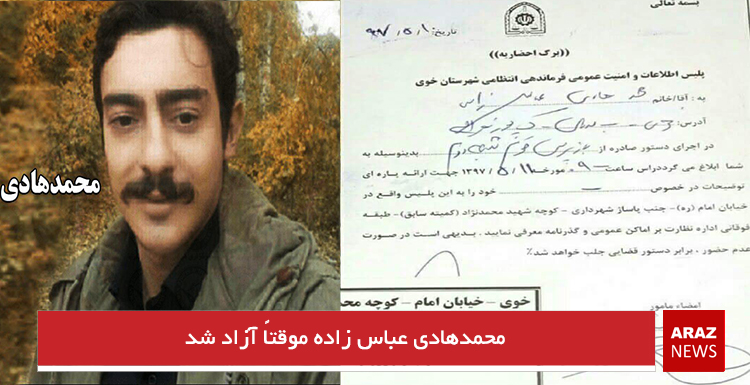 محمدهادی
بسمه تعالی
تاریخ:
((برگ احضاریه))
پلیس اطلاعات و امنیت عمومی فرماندهی انتظامی شهرستان خوی
به : آقا/خانم
آدرس:
در اجرای دستور صادره از بدینوسیله به
شما ابلاغ می گردد راس ساعت ۹ مورخ ۱۳۹۷/۵/۱۱ جهت ارائه پاره ای
توضیحات در خصوص خود را به این پلیس واقع در
خیابان امام (ره) - جنب پاساژ شهرداری - کوچه شهید محمدنژاد (کمیته سابق) - طبقه
فوقانی اداره نظارت بر اماکن عمومی و گذرنامه معرفی نمایید . بدیهی است در صورت
عدم حضور ، برابر دستور قضایی جلب خواهد شد٪
امضاء مامور
خوی – خیابان امام – کوچه
محمدهادی عباس زاده موقتاً آزاد شد
ARAZ
NEWS